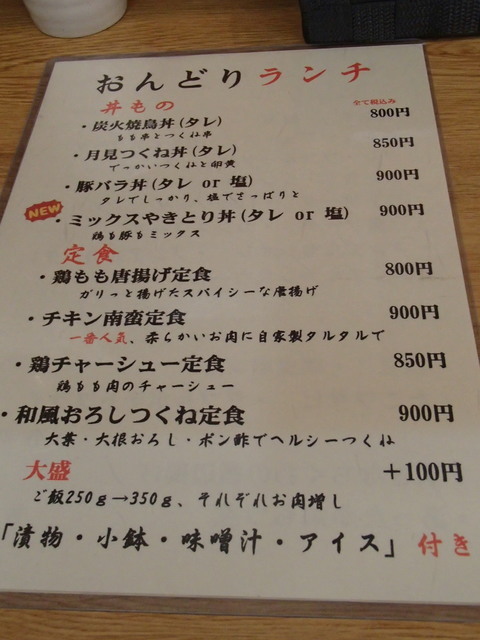 おんどりランチ
丼もの
全て税込み
・炭火焼鳥丼(タレ) 800円
もも串とつくね串
・月見つくね丼(タレ) 850円
でっかいつくねと卵黄
・豚バラ丼(タレ or 塩) 900円
タレでしっかり、塩でさっぱりと
NEW
・ミックスやきとり丼(タレ or 塩) 900円
鶏も豚もミックス
定食
・鶏もも唐揚げ定食 800円
ガリっと揚げたスパイシーな唐揚げ
・チキン南蛮定食 900円
一番人気、柔らかいお肉に自家製タルタルで
・鶏チャーシュー定食 850円
鶏もも肉のチャーシュー
・和風おろしつくね定食 900円
大葉・大根おろし・ポン酢でヘルシーつくね
大盛 +100円
ご飯250g→350g、それぞれお肉増し
「漬物・小鉢・味噌汁・アイス」付き